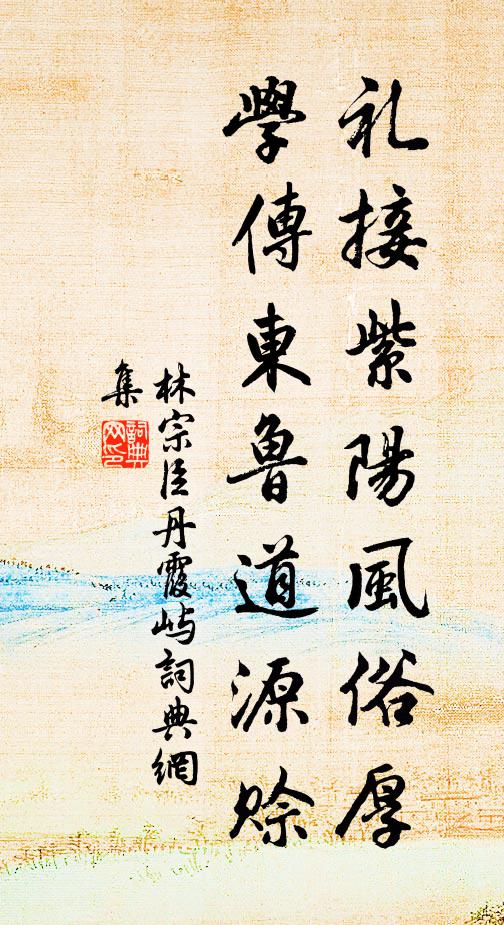 礼接紫陽風俗厚
學傳東魯道源賒
林宗臣丹霞屿詞典網
集
詞典網印